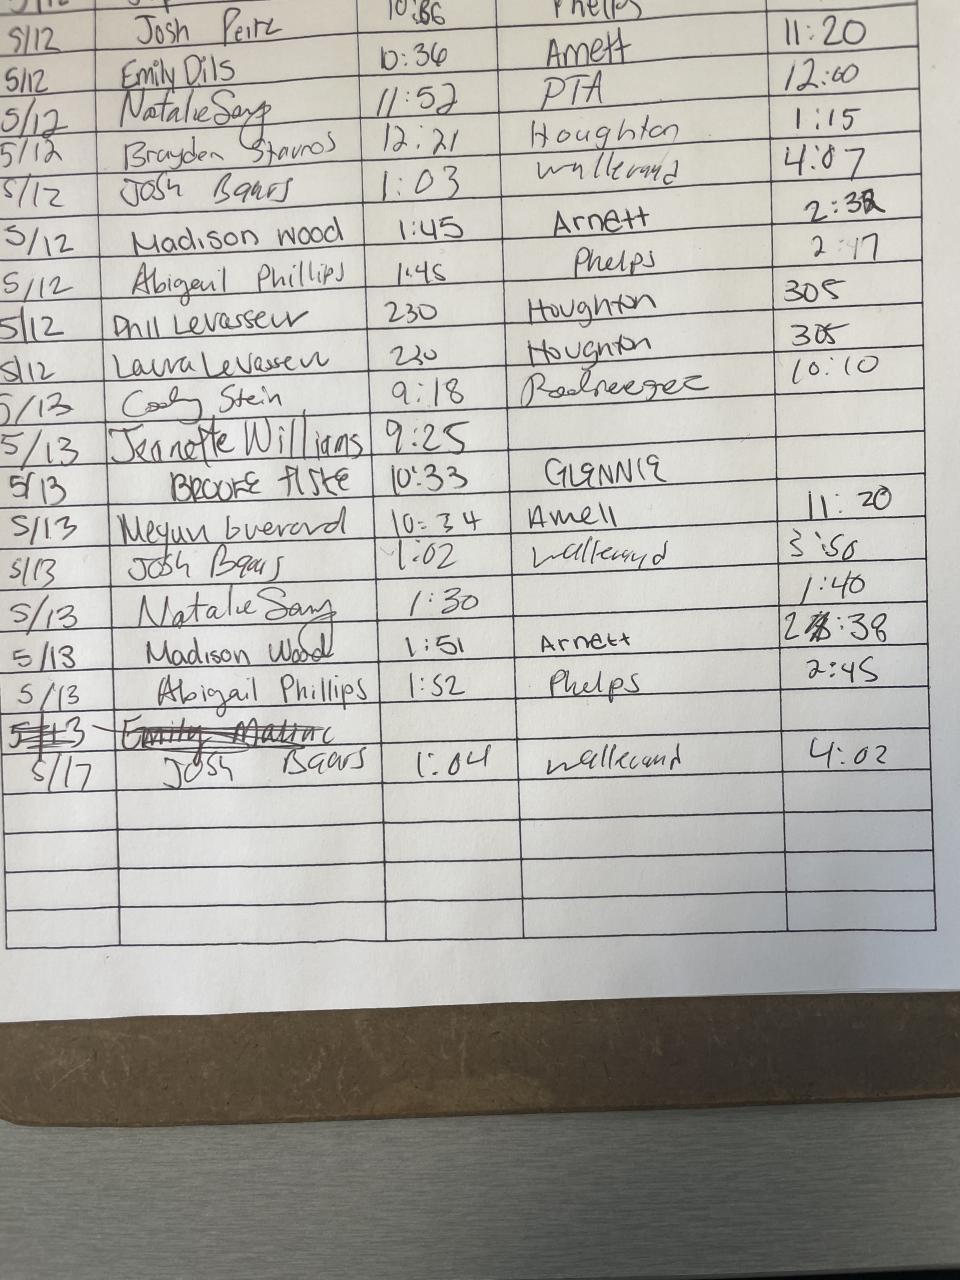 10:36 Phelps
5/12 Josh Peitz 11:20
5/12 Emily Dils 10:36 Arnett 12:00
5/12 Natalie Sang 11:52 PTA 1:15
5/12 Brayden Stavros 12:21 Houghton 4:07
5/12 Josh Baars 1:03
5/12 Madison Wood 1:45 Arnett 2:32
5/12 Abigail Phillips 1:45 Phelps 2:47
5/12 Phil Levasseur 230 Houghton 305
5/12 Laura Levasseur 230 Houghton 305
5/13 Cody Stein 9:18 10:10
5/13 Jeanette Williams 9:25
5/13 BROOKE FISKE 10:33 GLENNIE
5/13 Megan Guerard 10:34 11:20
5/13 Josh Baars 1:02 3:50
5/13 Natalie Sang 1:30 1:40
5/13 Madison Wood 1:51 Arnett 2:38
5/13 Abigail Phillips 1:52 Phelps 2:45
5/13 Emily
5/17 Josh Baars 1:04 4:02